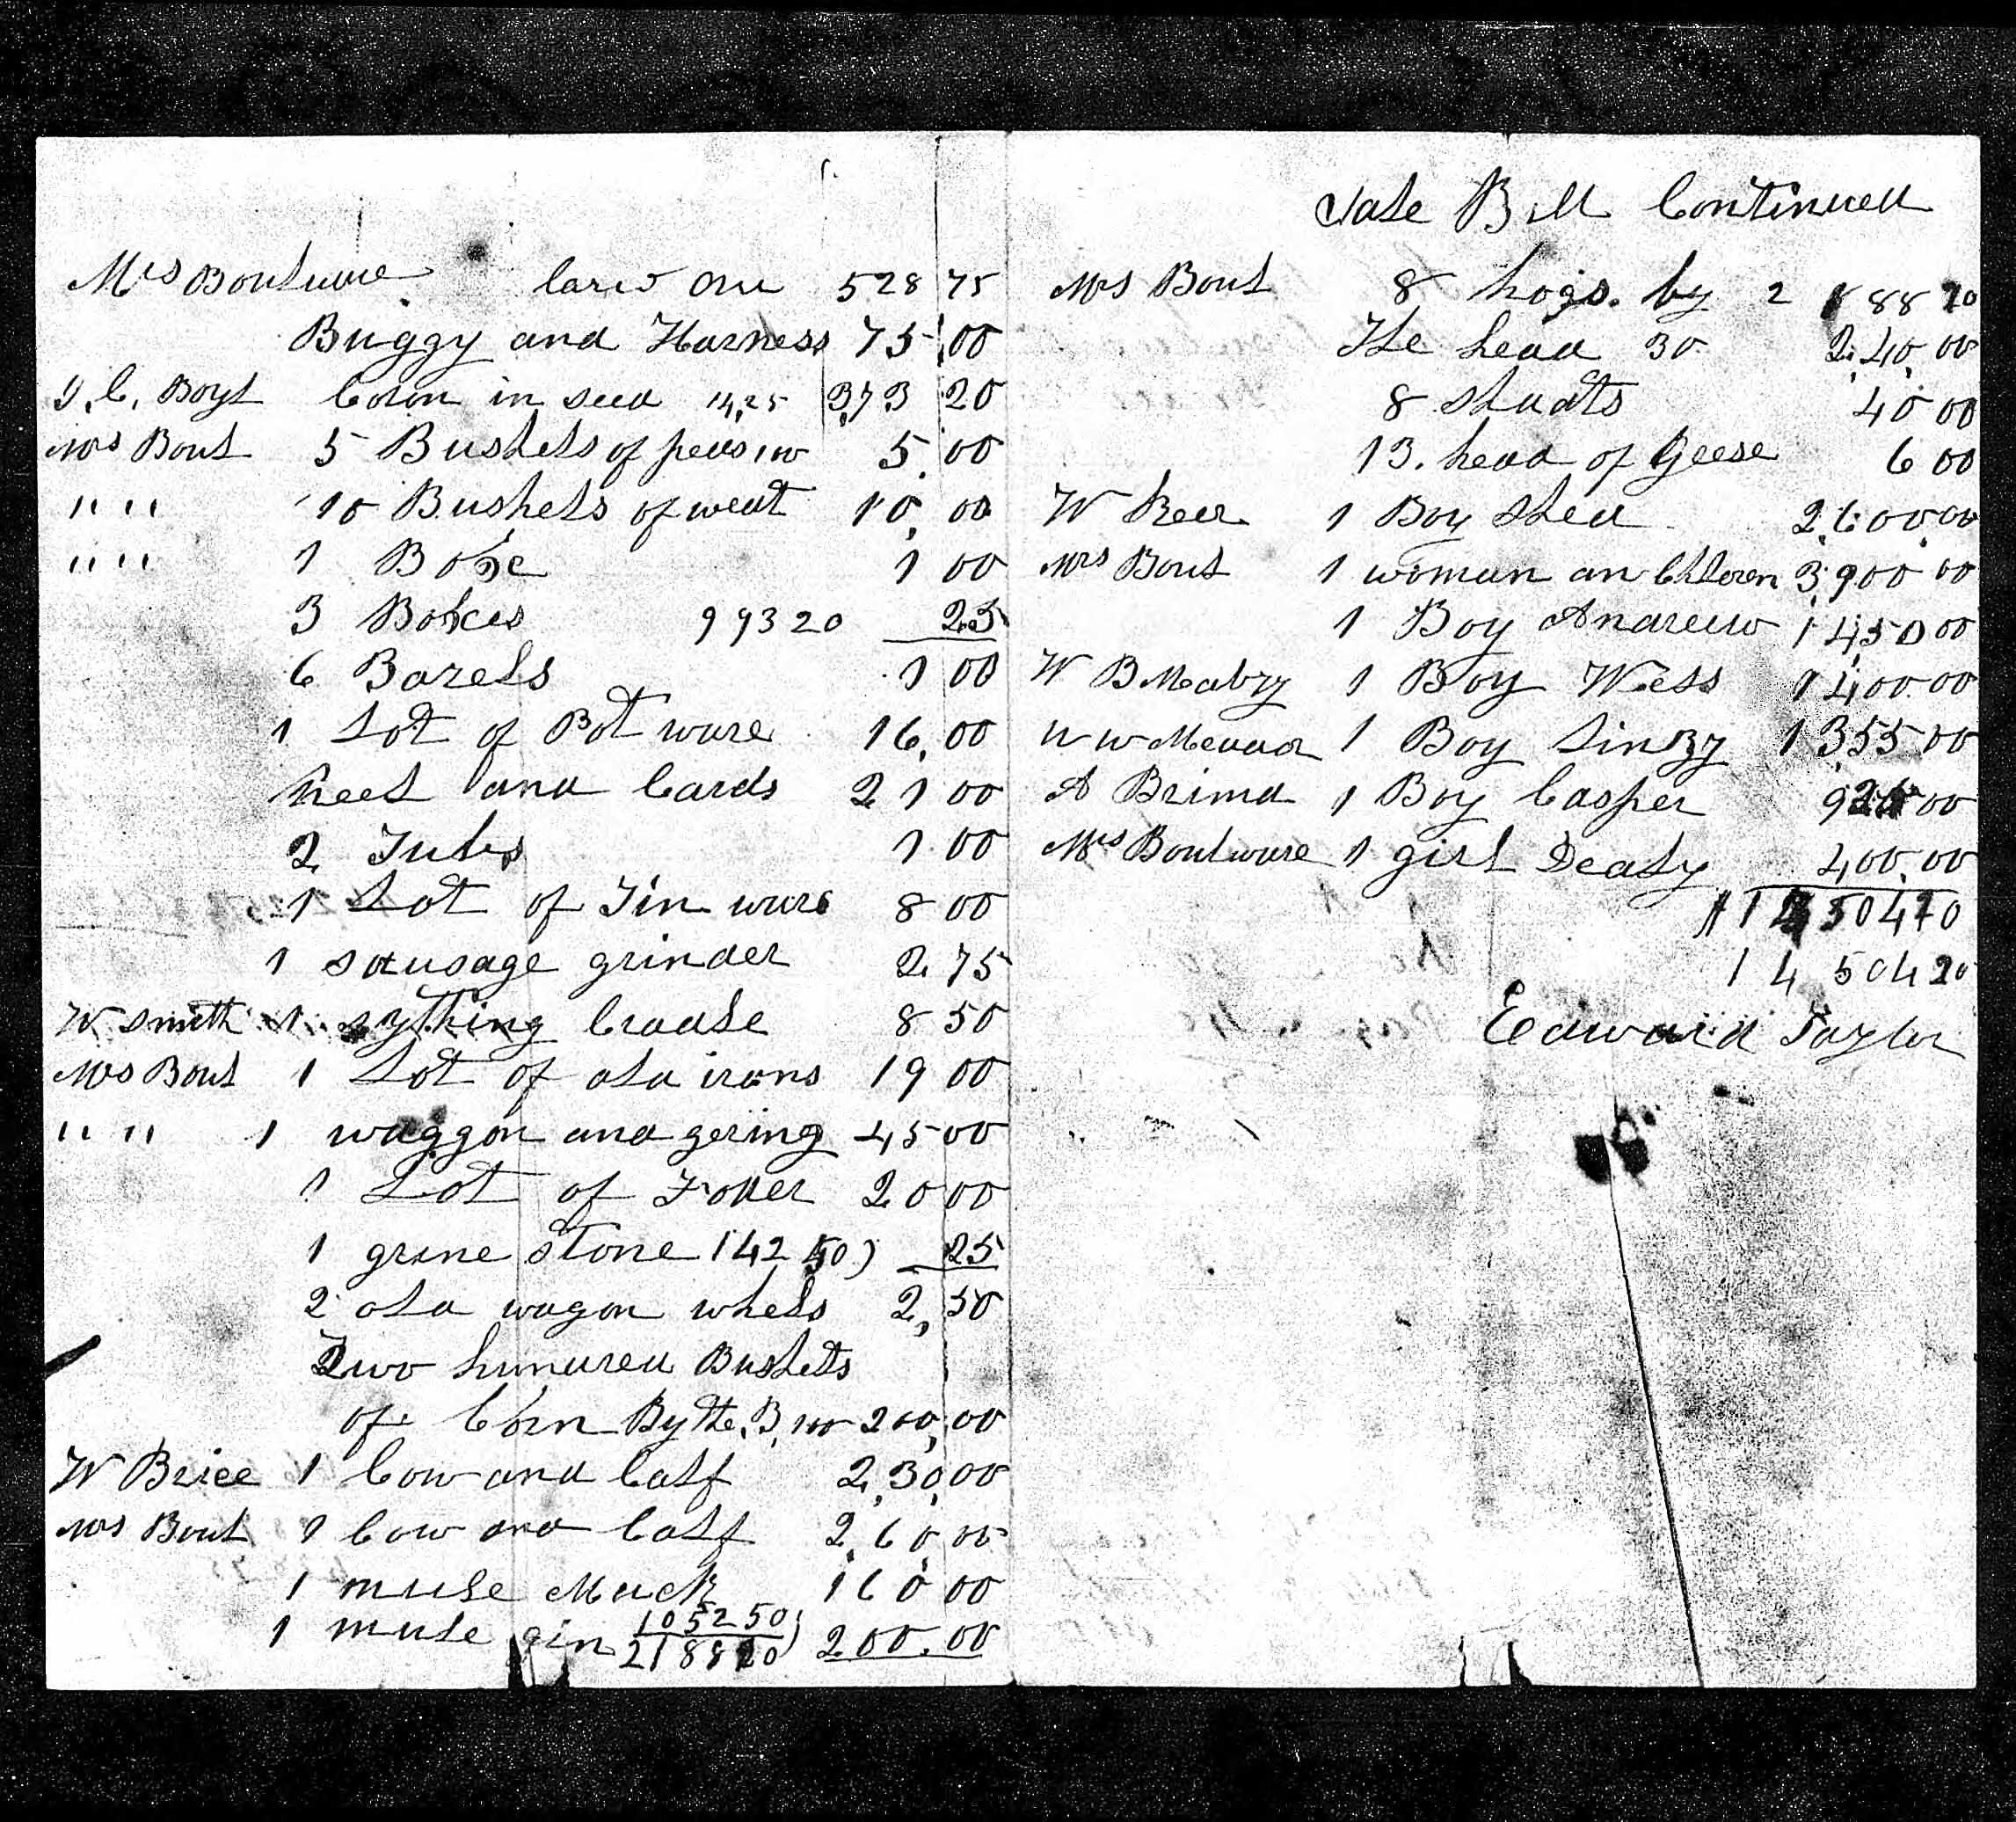 Mrs Boulware Caried Over 528 75
Buggy and Harness 75 00
J. C. Boyd Coton in seed 14,25 373 20
Mrs Boul 5 Bushels of peas 100 5.00
" " 10 Bushels of weat 10,00
" " 1 Boxe 1 00
3 Boxes 993 20 25
6 Barels 1 00
1 Lot of Pot ware 16,00
heel and Cards 21 00
2 Tubs 1 00
1 Lot of Tin ware 8 00
1 sausage grinder 2 75
W Smith 1 sything Cradle 8 50
Mrs Boul 1 Lot of old irons 19 00
" " 1 waggon and gering 45 00
1 Lot of Foder 20 00
1 grine stone 142 50) 25
2 old wagon whels 2,50
Two hundred Bushels
of Corn By the B, 100 200,00
W Brice 1 Cow and Calf 2,30,00
Mrs Boul 1 Cow and Calf 2,60 00
1 mule Muck 160 00
1 mule gin 1052 50) 200.00
2188 20
Sale Bill Continued
Mrs Boul 8 hogs. by 2188 20
The head 30 2,40,00
8 shoats 40 00
13. head of Geese 6 00
W Beer 1 Boy Shed 2,600,00
Mrs Boul 1 woman an Chldren 3,900 00
1 Boy Andrew 1450 00
W B Mabry 1 Boy Wess 1400 00
W W Meador 1 Boy Linzy 1,355 00
A Brima 1 Boy Casper 925 00
Mrs Boulware 1 girl Dealy 400,00
14 504 20
14 504 20
Edward Taylor